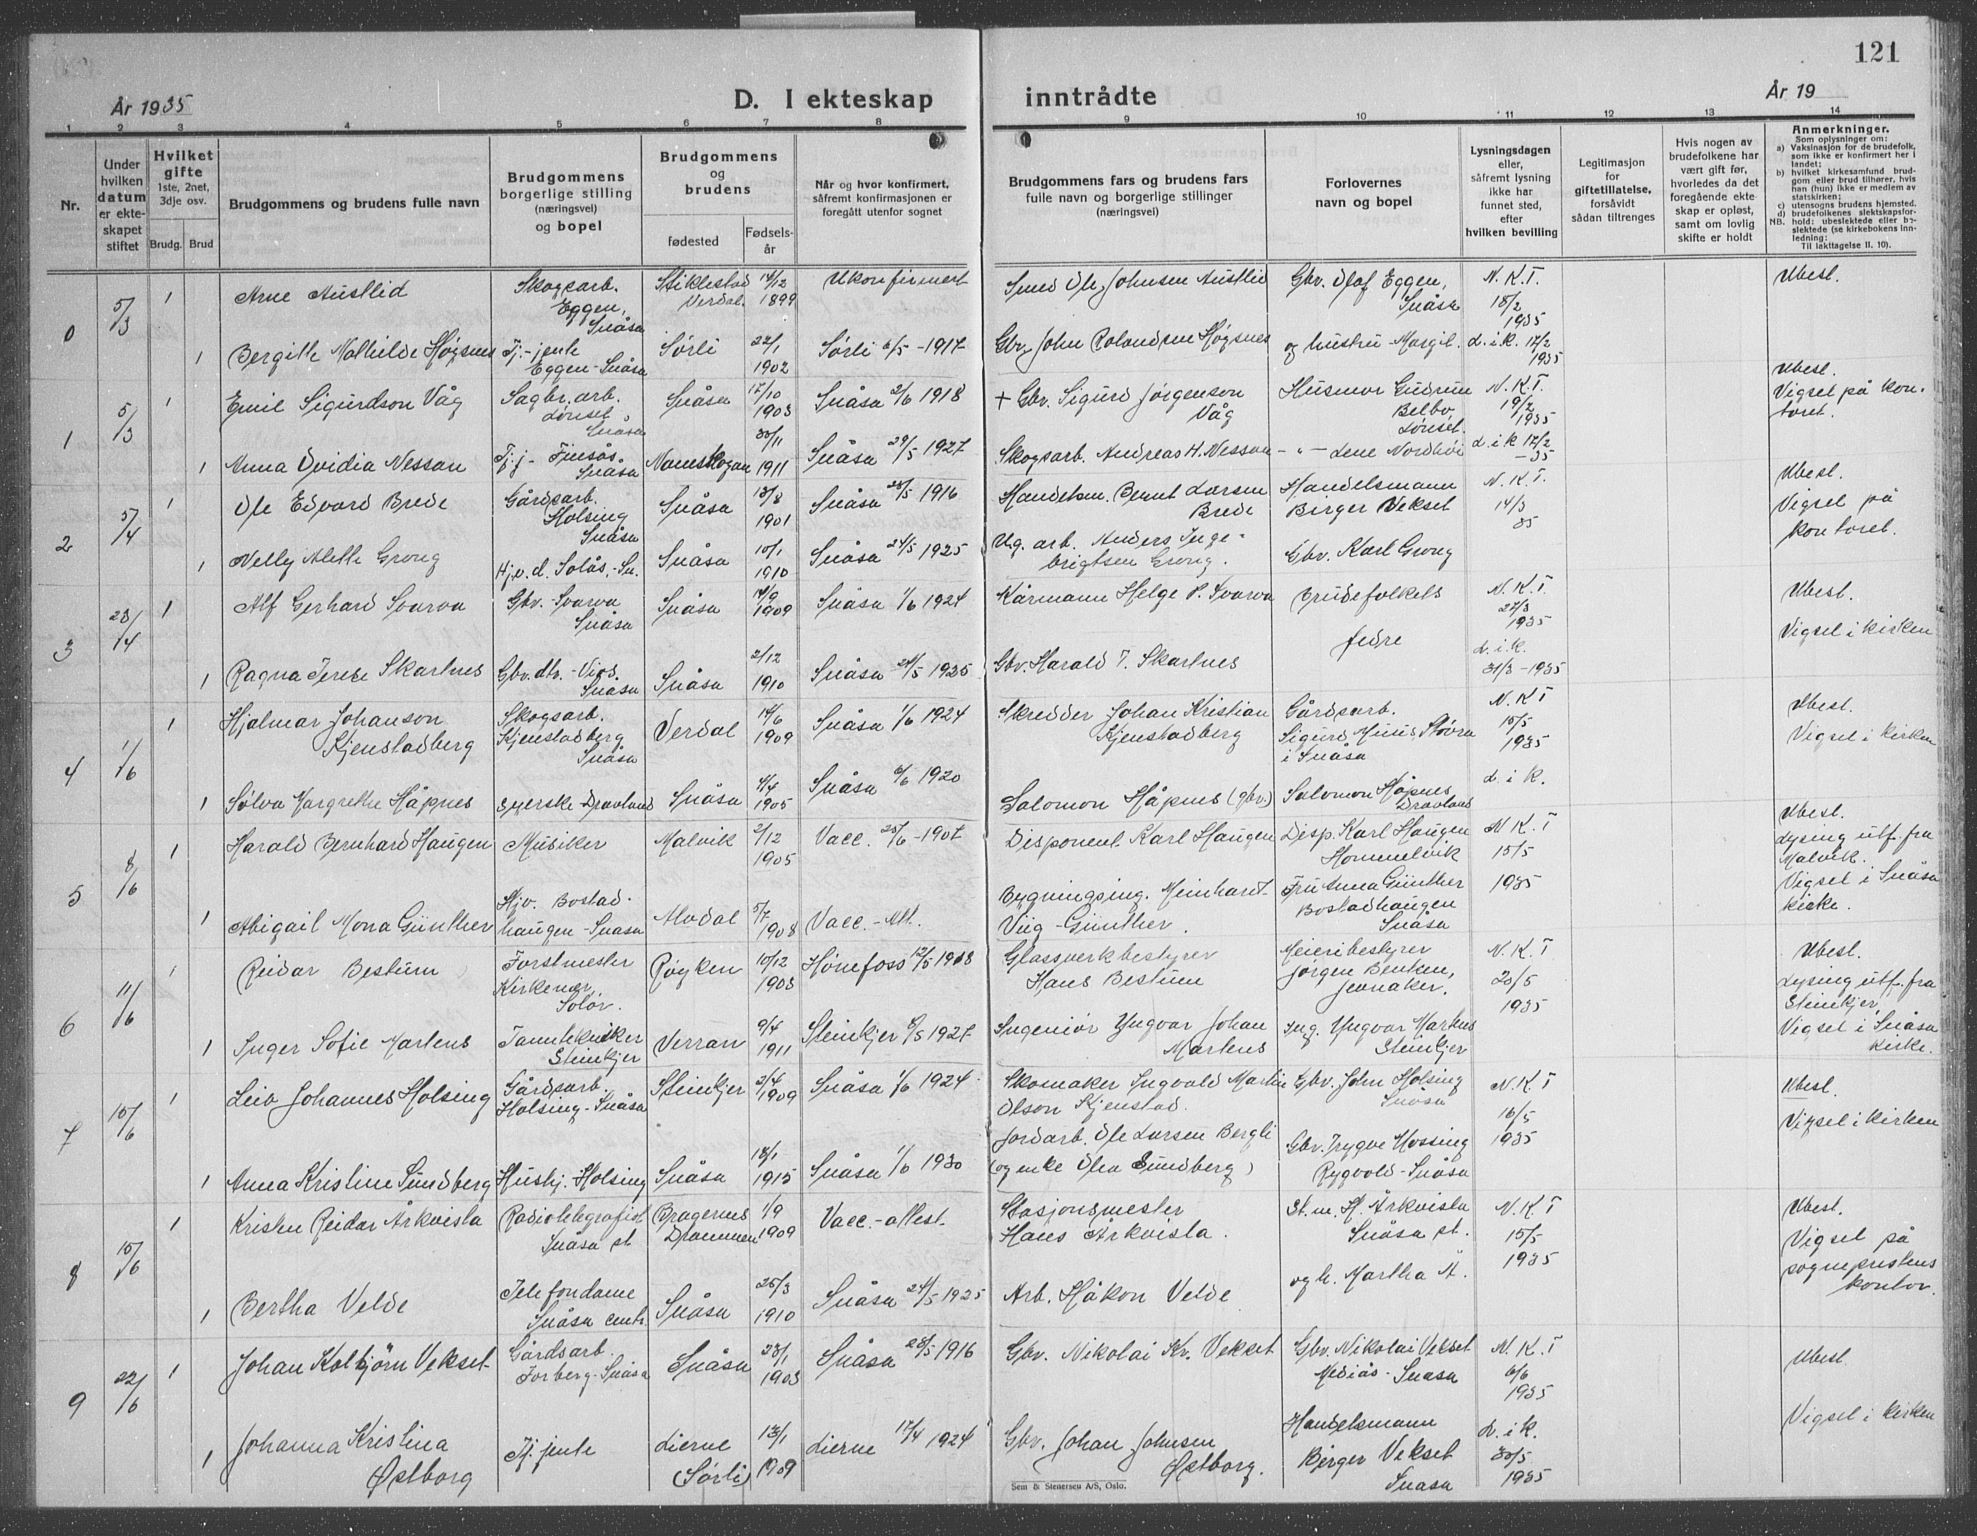 121
År 1935
D. I ekteskap inntrådte
År 19
1 2 3 4 5 6 7 8 9 10 11 12 13 14
Nr.
Under hvilken datum er ekteskapet stiftet
Hvilket gifte
1ste, 2net, 3dje osv.
Brudg. Brud
Brudgommens og brudens fulle navn
Brudgommens borgerlige stilling (næringsvei) og bopel
Brudgommens og brudens
fødested
Fødselsår
Når og hvor konfirmert, såfremt konfirmasjonen er foregått utenfor sognet
Brudgommens fars og brudens fars fulle navn og borgerlige stillinger (næringsvei)
Forlovernes navn og bopel
Lysningsdagen eller, såfremt lysning ikke har funnet sted, efter hvilken bevilling
Legitimasjon for giftetillatelse, forsåvidt sådan tiltrenges
Hvis nogen av brudefolkene har vært gift før, hvorledes da det foregående ekteskap er opløst, samt om lovlig skifte er holdt
Anmerkninger.
Som oplysninger om:
a) Vaksinasjon for de brudefolk, som ikke er konfirmert her i landet;
b) hvilket kirkesamfund brudgom eller brud tilhører, hvis han (hun) ikke er medlem av statskirken;
c) utensogns brudens hjemsted.
d) brudefolkenes slektskapsforhold: ubeslektede eller beslektede (se kirkebokens innledning;
NB. Til iakttagelse II. 10).
0 5/3 1 Arne Austlid Skogsarb. Eggen, Snåsa Stiklestad Verdal. 14/12 1899 Ukonfirmert Smed Ole Johnsen Austlid Gbr. Olaf Eggen, Snåsa N.K.T. 15/2 1935 Ubesl.
1 Bergitte Mathilde Høgsnes Tj.-jente Eggen-Snåsa Sørli 22/1 1902 Sørli 6/5-1917 Gbr. John Rolandsen Høgsnes og hustru Margit. d.i.k. 17/2 1935
1 5/3 1 Emil Sigurdson Våg Sagbr.arb. Lønset, Snåsa Snåsa 17/10 1903 Snåsa 2/6 1918 + Gbr. Sigurd Jørgenson Våg Husmor Gudrun Belbo, Lønset. N.K.T. 19/2 1935 Ubesl. Vigsel på kontoret.
1 Anna Ovidia Nessan Tj.j- Finsås Snåsa Namskogan 30/11 1911 Snåsa 29/5 1927 Skogsarb. Andreas H. Nessan -"- Lene Nordhøi d.i.k 17/2 -35
2 5/4 1 Ole Edvard Brede Gårdsarb. Holsing Snåsa Snåsa 13/8 1901 Snåsa 28/5 1916 Handelsm. Bernt Larsen Brede Handelsmann Birger Vekset N.K.T. 14/3 35 Ubesl. Vigsel på kontoret.
1 Nelly Alette Grong Hj.v.d. Solås,-Sn. Snåsa 10/1 1910 Snåsa 24/5 1925 Ug. arb. Anders Ingebrigtsen Grong. Gbr. Karl Grong
3 23/4 1 Alf Gerhard Svarva Gbr.-Svarva Snåsa Snåsa 14/9 1909 Snåsa 1/6 1924 Kårmann Helge P. Svarva Brudefolkets fedre N.K.T. 27/3 1935 Ubesl. Vigsel i kirken
1 Ragna Terese Skartnes Gbr.dtr.-Vios. Snåsa Snåsa 2/12 1910 Snåsa 24/5 1925 Gbr. Harald T. Skartnes d.i.k. 31/3-1935
4 1/6 1 Hjalmar Johanson Kjenstadberg Skogsarb. Kjenstadberg Snåsa Verdal 14/6 1909 Snåsa 1/6 1924 Skredder Johan Kristian Kjenstadberg Gårdsarb. Sigurd Muus Støvra i Snåsa N.K.T 15/5 1935 Ubesl. Vigsel i kirken
1 Sølva Margrethe Håpnes Syerske Dravland Snåsa 4/4 1905 Snåsa 6/6 1920 Salomon Håpnes (gbr.) Salomon Håpnes Dravland d.i.k.
5 8/6 1 Harald Bernhard Haugen Musiker Malvik 2/12 1905 Vacc. 25/6-1907 Disponent Karl Haugen Disp. Karl Haugen Hommelvik N.K.T 15/5 1935 Ubesl. Lysing utf. fra Malvik. Vigsel i Snåsa kirke.
1 Abigail Mona Günther Hjv. Bostadhaugen-Snåsa Alvdal 5/7 1908 Vacc.-Att. Bygningsing. Meinharet-Viig-Günther. Fru Anna Günther Bostadhaugen Snåsa
6 11/6 1 Reidar Bestum Forstmester Kirkenær, Solør. Røyken 10/12 1903 Hønefoss 12/5 1918 Glassverkbestyrer Hans Bestum Meieribestyrer Jørgen Benken, Jevnaker. N.K.T 20/5 1935 Ubesl. Lysing utf. fra Steinkjer, Vigsel i Snåsa kirke.
1 Inger Sofie Martens Tanntekniker Steinkjer Verran 9/4 1911 Steinkjer 8/5 1927 Ingeniør Yngvar Johan Martens Ing. Yngvar Martens Steinkjer
7 15/6 1 Leiv Johannes Holsing Gårdsarb. Holsing-Snåsa Steinkjer 2/4 1909 Snåsa 1/6 1924 Skomaker Ingvald Martin Olson Kjenstad. Gbr. John Holsing Snåsa N.K.T 16/5 1935 Ubesl. Vigsel i kirken
1 Anna Kristine Sundberg Hushj. Holsing Snåsa 18/1 1915 Snåsa 1/6 1930 Jordarb. Ole Larsen Bergli (og enke Olea Sundberg) Gbr. Trygve Mossing Rygvold-Snåsa
8 15/6 1 Kristen Reidar Årkvisla Radiotelegrafist Snåsa st Bragernes Drammen 1/9 1909 Vacc.-attest. Stasjonsmester Hans Årkvisla. St.m. H. Årkvisla Snåsa st. N.K.T 15/5 1935 Ubesl. Vigsel på sogneprestens kontor.
1 Bertha Velde Telefondame Snåsa centr. Snåsa 25/3 1910 Snåsa 24/5 1925 Arb. Håkon Velde og h. Martha Å.
9 22/6 1 Johan Kolbjørn Vekset Gårdsarb. Forberg-Snåsa Snåsa 23/1 1903 Snåsa 28/5 1916 Gbr. Nikolai Kr. Vekset Gbr. Nikolai Vekset Mediås-Snåsa N.K.T 6/6 1935 Ubesl. Vigsel i kirken
1 Johanna Kristina Østborg Tj. jente Lierne (Sørli) 13/1 1909 Lierne 17/4 1924 Gbr. Johan Johnsen Østborg. Handelsmann Birger Vekset Snåsa d.i.k. 30/5 1935
Sem & Stenersen A/S, Oslo.